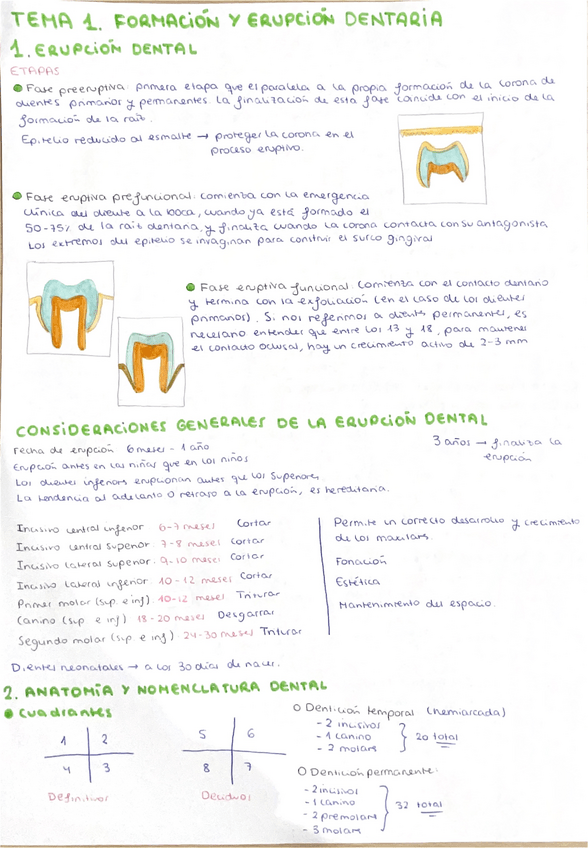 TEMA 1. FORMACIÓN Y ERUPCIÓN DENTARIA
1. ERUPCIÓN DENTAL
ETAPAS
Fase preeruptiva: primera etapa que es paralela a la propia formación de la corona de
dientes primarios y permanentes. La finalización de esta fase coincide con el inicio de la
formación de la raíz.
Epitelio reducido al esmalte → proteger la corona en el
proceso eruptivo.
Fase eruptiva prefuncional: comienza con la emergencia
clínica del diente a la boca, cuando ya está formado el
50-75% de la raíz dentaria, y finaliza cuando la corona contacta con su antagonista
Los extremos del epitelio se invaginan para construir el surco gingival
Fase eruptiva funcional: comienza con el contacto dentario
y termina con la exfoliación (en el caso de los dientes
primarios). Si nos referimos a dientes permanentes, es
necesario entender que entre los 13 y 18, para mantener
el contacto oclusal, hay un crecimiento activo de 2-3 mm
CONSIDERACIONES GENERALES DE LA ERUPCIÓN DENTAL
Fecha de erupción 6 meses - 1 año
3 años → finaliza la
erupción
Erupción antes en las niñas que en los niños
Los dientes inferiores erupcionan antes que los superiores
La tendencia al adelanto o retraso a la erupción, es hereditaria.
Incisivo central inferior 6-7 meses Cortar
Incisivo central superior 7-8 meses Cortar
Incisivo lateral superior 9-10 meses Cortar
Incisivo lateral inferior 10-12 meses Cortar
Primer molar (sup e inf) 10-12 meses Triturar
Canino (sup e inf) 18-20 meses Desgarrar
Segundo molar (sup e inf) 24-30 meses Triturar
Permite un correcto desarrollo y crecimiento
de los maxilares.
Fonación
Estética
Mantenimiento del espacio.
Dientes neonatales → a los 30 días de nacer.
2. ANATOMÍA Y NOMENCLATURA DENTAL
Cuadrantes
1 2
4 3
Definitivos
5 6
8 7
Deciduos
O Dentición temporal (hemiarcada)
- 2 incisivos
- 1 canino
- 2 molares
20 total
O Dentición permanente:
- 2 incisivos
- 1 canino
- 2 premolares
- 3 molares
32 total